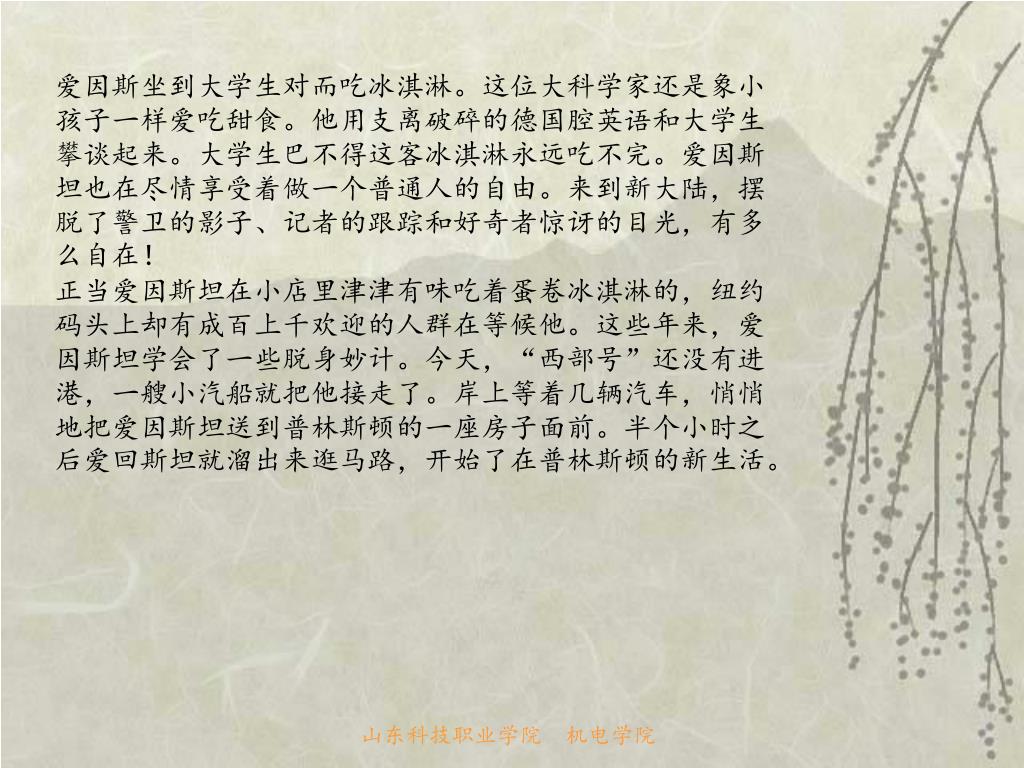 爱因斯坐到大学生对而吃冰淇淋。这位大科学家还是象小
孩子一样爱吃甜食。他用支离破碎的德国腔英语和大学生
攀谈起来。大学生巴不得这客冰淇淋永远吃不完。爱因斯
坦也在尽情享受着做一个普通人的自由。来到新大陆，摆
脱了警卫的影子、记者的跟踪和好奇者惊讶的目光，有多
么自在！
正当爱因斯坦在小店里津津有味吃着蛋卷冰淇淋的，纽约
码头上却有成百上千欢迎的人群在等候他。这些年来，爱
因斯坦学会了一些脱身妙计。今天，“西部号”还没有进
港，一艘小汽船就把他接走了。岸上等着几辆汽车，悄悄
地把爱因斯坦送到普林斯顿的一座房子面前。半个小时之
后爱回斯坦就溜出来逛马路，开始了在普林斯顿的新生活。
山东科技职业学院 机电学院